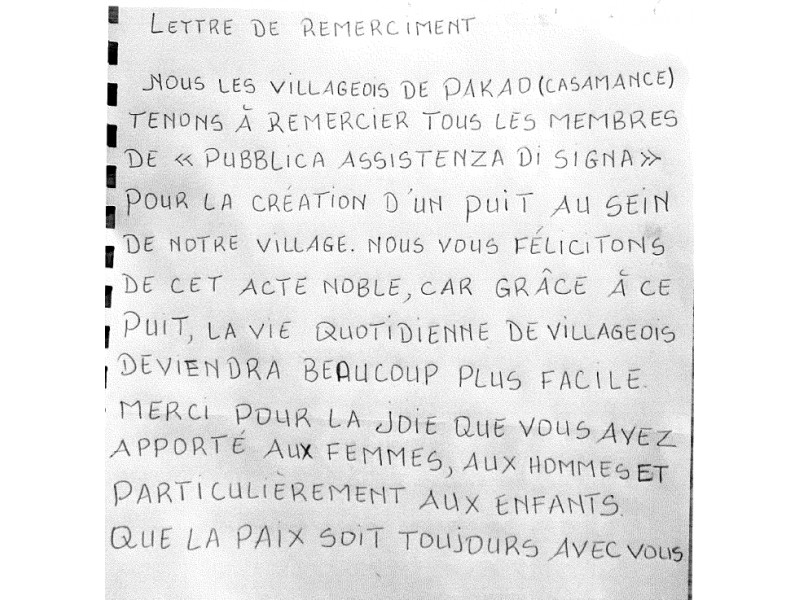 LETTRE DE REMERCIMENT
NOUS LES VILLAGEOIS DE PAKAO (CASAMANCE)
TENONS À REMERCIER TOUS LES MEMBRES
DE « PUBBLICA ASSISTENZA Di SIGNA »
POUR LA CRÉATION D'UN PUIT AU SEIN
DE NOTRE VILLAGE. NOUS VOUS FÉLICITONS
DE CET ACTE NOBLE, CAR GRÂCE À CE
PUIT, LA VIE QUOTIDIENNE DE VILLAGEOIS
DEVIENDRA BEAUCOUP PLUS FACILE.
MERCI POUR LA JOIE QUE VOUS AVEZ
APPORTÉ AUX FEMMES, AUX HOMMES ET
PARTICULIÈREMENT AUX ENFANTS.
QUE LA PAIX SOIT TOUJOURS AVEC VOUS